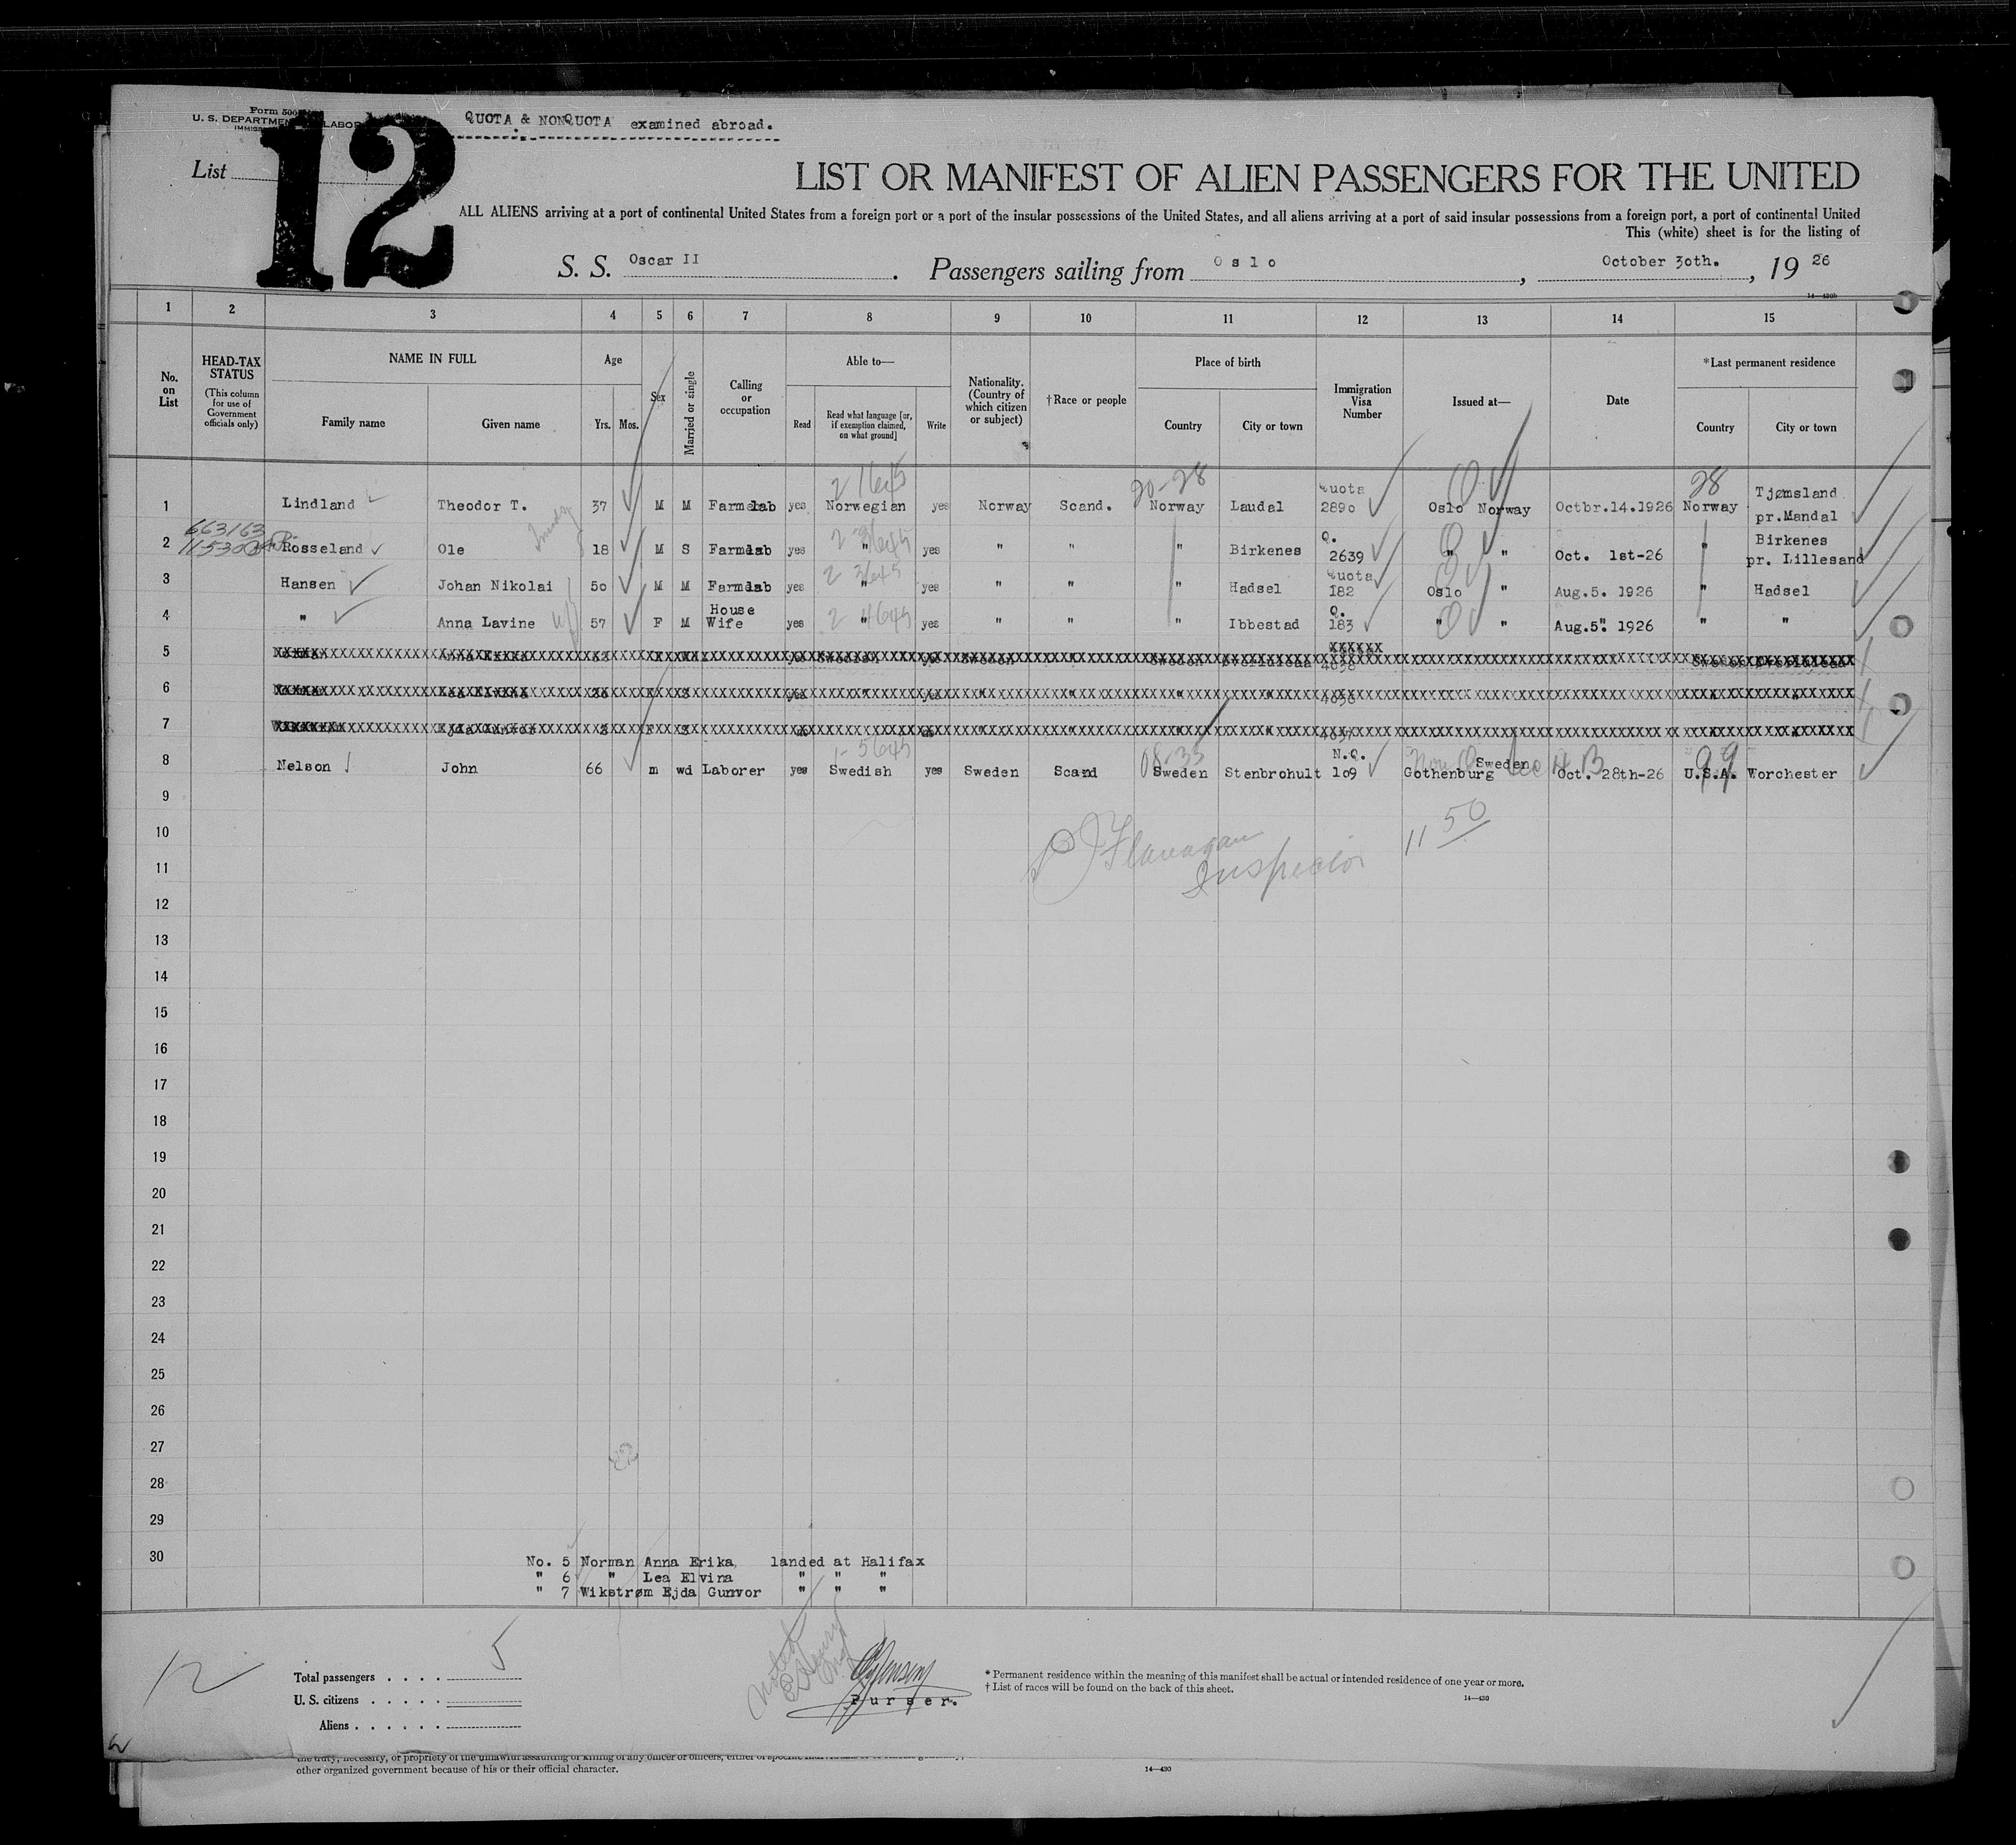 Form 500
U. S. DEPARTMENT LABOR
QUOTA & NONQUOTA examined abroad.
List
12
LIST OR MANIFEST OF ALIEN PASSENGERS FOR THE UNITED
ALL ALIENS arriving at a port of continental United States from a foreign port or a port of the insular possessions of the United States, and all aliens arriving at a port of said insular possessions from a foreign port, a port of continental United
This (white) sheet is for the listing of
S. S. Oscar II . Passengers sailing from Oslo , October 3oth. , 19 26
14—430b
1 2 3 4 5 6 7 8 9 10 11 12 13 14 15
No. on List
HEAD-TAX STATUS
(This column for use of Government officials only)
NAME IN FULL
Family name Given name
Age
Yrs. Mos.
Sex
Married or single
Calling or occupation
Able to—
Read
Read what language [or, if exemption claimed, on what ground]
Write
Nationality. (Country of which citizen or subject)
†Race or people
Place of birth
Country City or town
Immigration Visa Number
Issued at—
Date
*Last permanent residence
Country City or town
1 Lindland Theodor T. 37 M M Farmlab yes Norwegian yes Norway Scand. Norway Laudal Quota 289o Oslo Norway Octbr.14.1926 Norway Tjømsland pr.Mandal
20-28 28
663163
2 Rosseland Ole 18 M S Farmlab yes " yes " " " Birkenes Q. 2639 " " Oct. 1st-26 " Birkenes pr. Lillesand
3 Hansen Johan Nikolai 5o M M Farmlab yes " yes " " " Hadsel Quota 182 Oslo " Aug.5. 1926 " Hadsel
4 " Anna Lavine 57 F M House Wife yes " yes " " " Ibbestad Q. 183 " " Aug.5". 1926 " "
5
6
7
8 Nelson John 66 m wd Laborer yes Swedish yes Sweden Scand Sweden Stenbrohult N.Q. 1o9 Gothenburg Sweden Oct. 28th-26 U.S.A. Worchester
99
9
10
11
P J Flanagan
Inspector
11 50
12
13
14
15
16
17
18
19
20
21
22
23
24
25
26
27
28
29
30
No. 5 Norman Anna Erika, landed at Halifax
" 6 " Lea Elvina " " "
" 7 Wikstrøm Ejda Gunvor " " "
12
Total passengers . . . . 5
U. S. citizens . . . . .
Aliens . . . . . .
Purser.
* Permanent residence within the meaning of this manifest shall be actual or intended residence of one year or more.
† List of races will be found on the back of this sheet.
14—430
the duty, necessity, or propriety of the unlawful assaulting or killing of any officer or officers, either of
other organized government because of his or their official character.
14—430